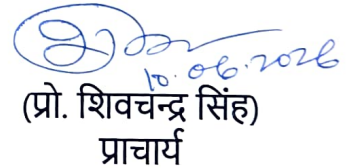 10.06.2026
(प्रो. शिवचन्द्र सिंह)
प्राचार्य